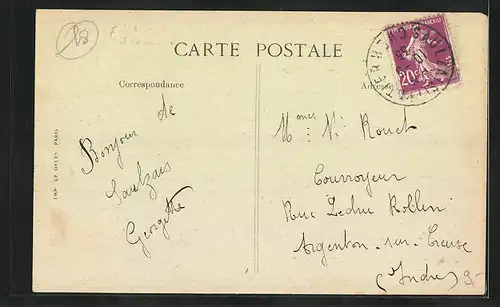 18
CARTE POSTALE
Correspondance
Adresse
20c
IMP. LE DELEY. PARIS
de
Bonjour
Saulzais
Georgette
Mmes Vi Rouet
Courroyeur
Rue Ledru Rollin
Argenton-sur-Creuse
(Indre)